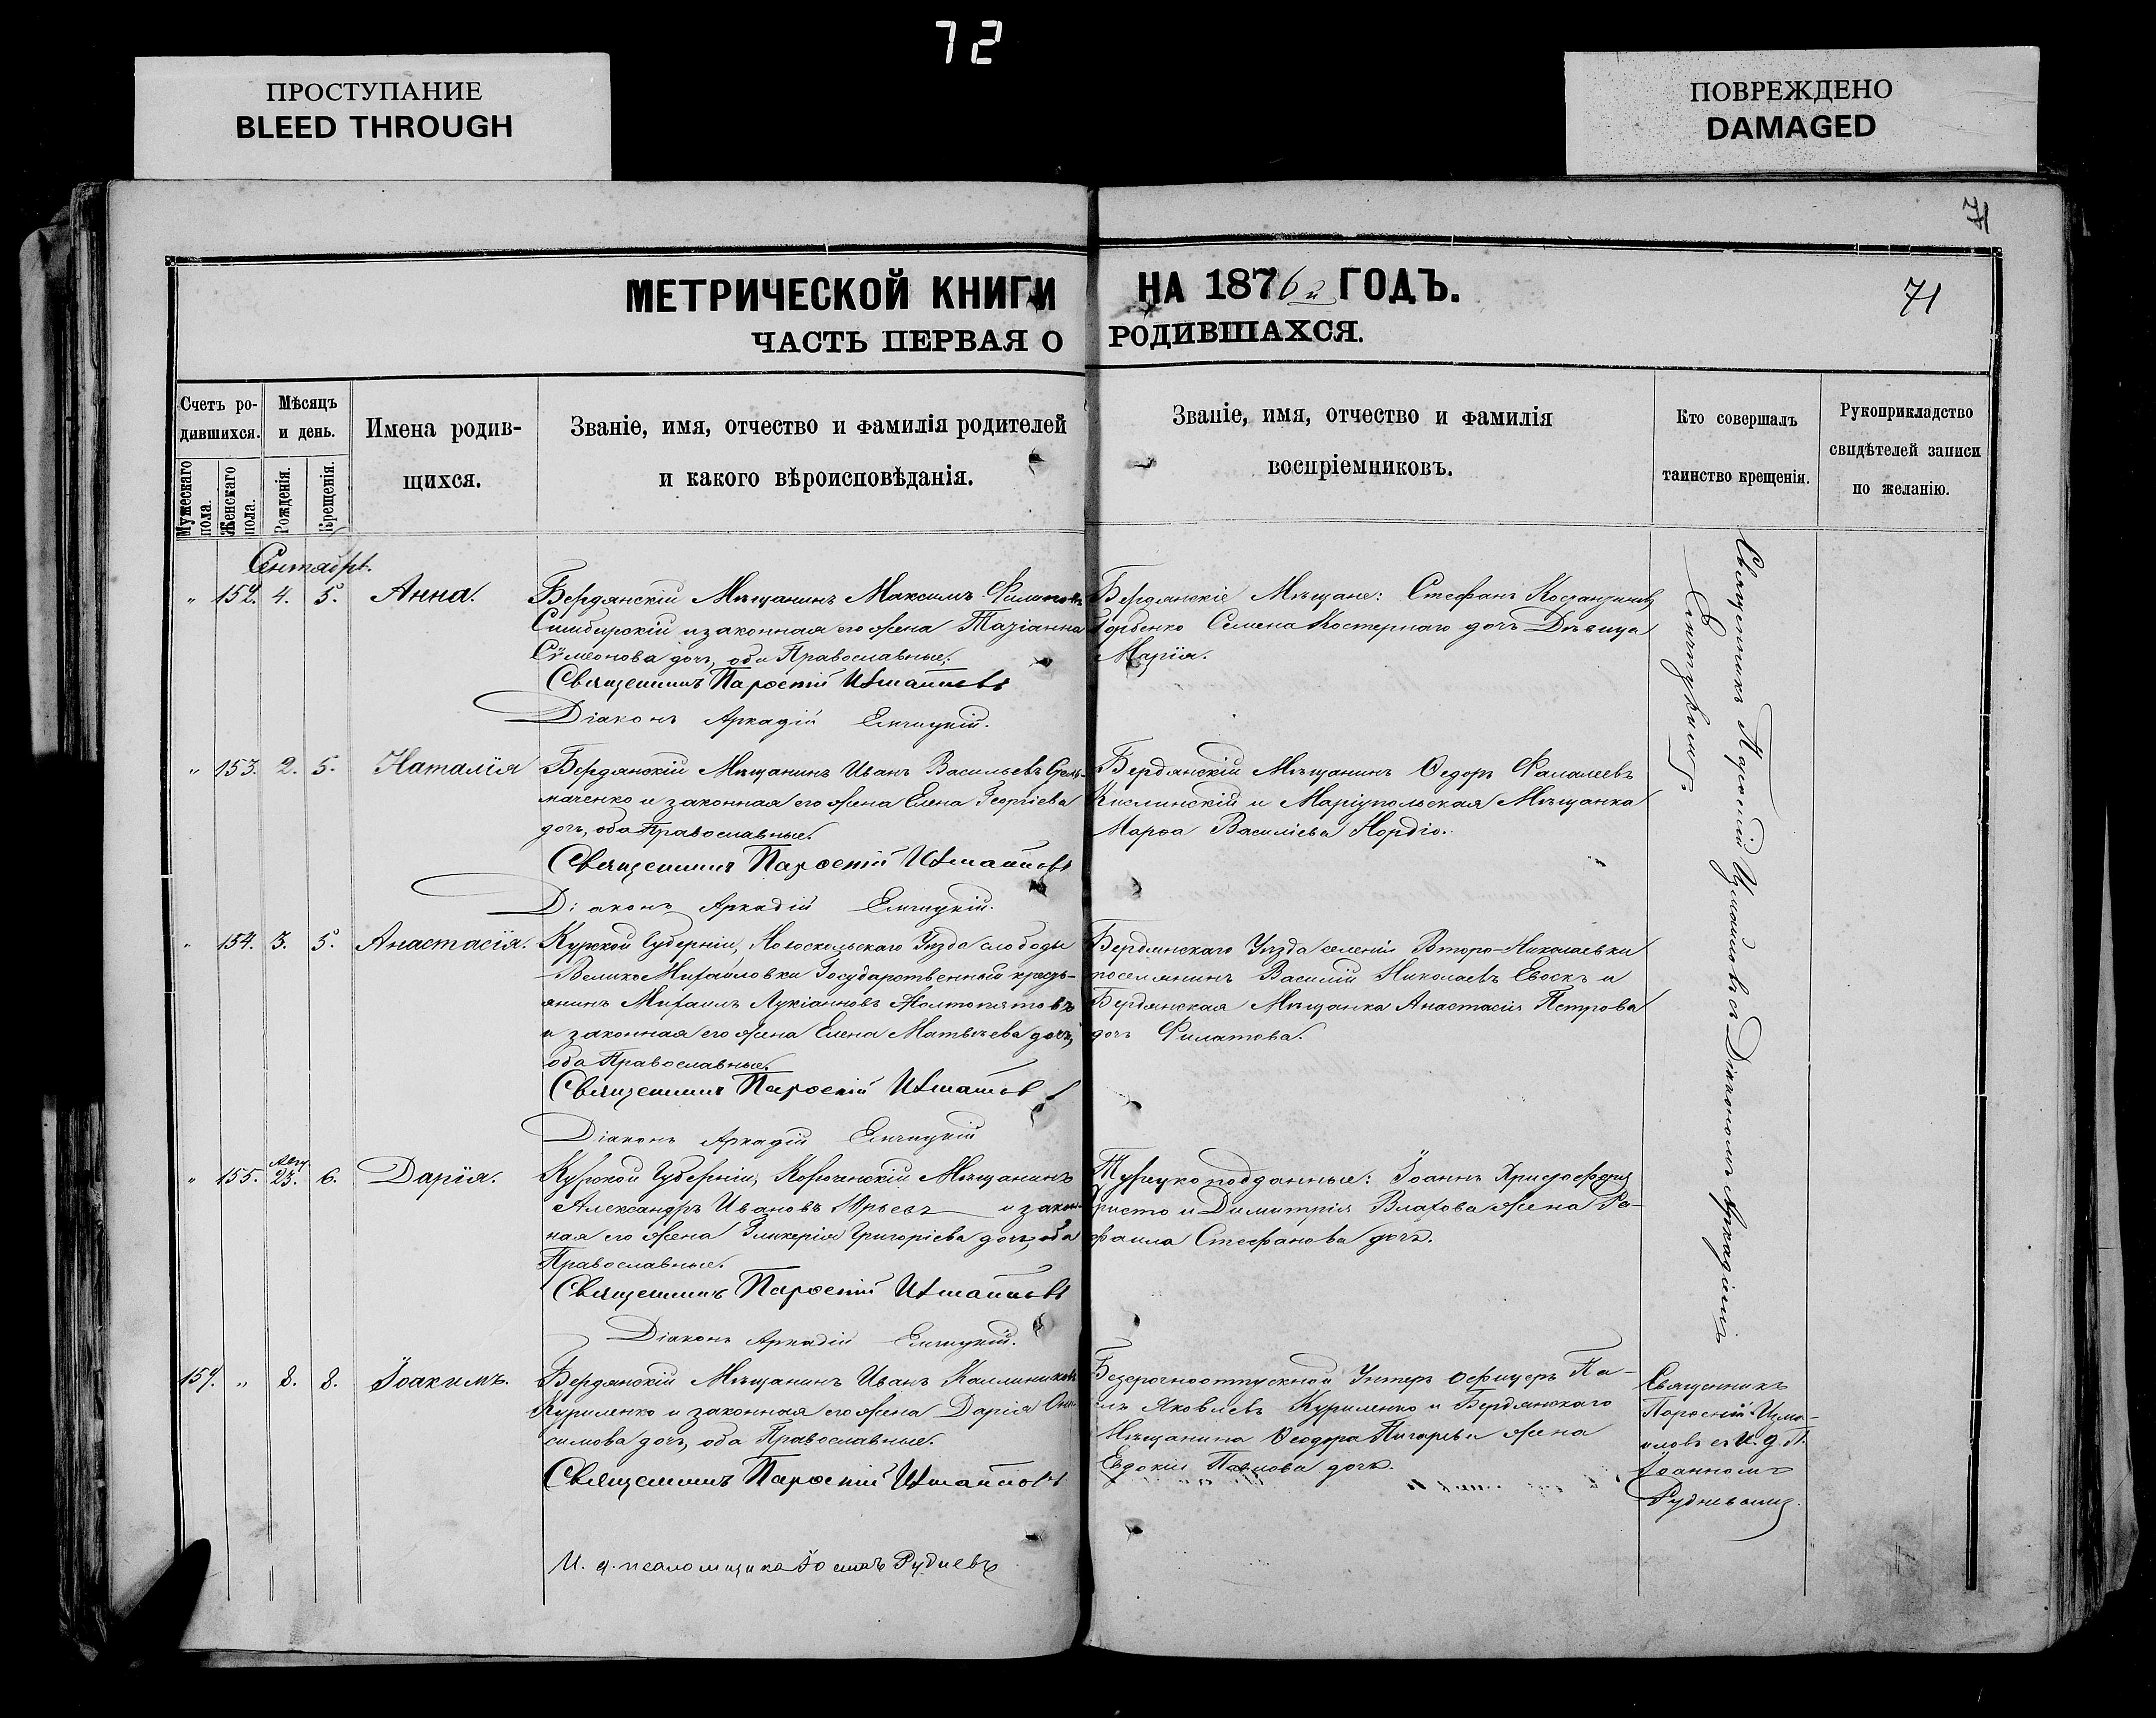 72
ПРОСТУПАНИЕ
BLEED THROUGH
ПОВРЕЖДЕНО
DAMAGED
71
МЕТРИЧЕСКОЙ КНИГИ НА 1876й ГОДЪ.
71
ЧАСТЬ ПЕРВАЯ О РОДИВШАХСЯ.
Счетъ ро-
дившихся.
Мужескаго пола.
Женскаго пола.
Мѣсяцъ
и день.
Рожденія.
Крещенія.
Имена родив-
щихся.
Званіе, имя, отчество и фамилія родителей
и какого вѣроисповѣданія.
Званіе, имя, отчество и фамилія
воспріемниковъ.
Кто совершалъ
таинство крещенія.
Рукоприкладство
свидѣтелей записи
по желанію.
Сентябрь.
" 152. 4. 5. Анна.
Бердянскій Мѣщанинъ Максимъ Филиповъ
Симбирскій и законная его жена Татіанна
Сѵмеонова дочь, оба Православные.
Священникъ Парѳеній Измаиловъ
Діаконъ Аркадій Елчицкій.
Бердянскіе Мѣщане: Стефанъ
Горбенко Семена Костернаго дочь Дѣвица
Марія.
Священникъ Парѳеній Измаиловъ съ Діакономъ Аркадіемъ
Елчицкимъ.
" 153. 2. 5. Наталія
Бердянскій Мѣщанинъ Иванъ Васильевъ Срель-
маченко и законная его жена Елена Георгіева
дочь, оба Православные.
Священникъ Парѳеній Измаиловъ
Діаконъ Аркадій Елчицкій.
Бердянскій Мѣщанинъ Ѳедоръ Фалалеевъ
Кислинскій и Маріупольская Мѣщанка
Марѳа Василіева Нордіо.
" 154. 3. 5. Анастасія.
Курской Губерніи, Новоскольскаго Уѣзда слободы
Велико Михайловки Государственный кресть-
янинъ Михаилъ Лукіановъ Жолтопятовъ
и законная его жена Елена Матвѣева дочь,
оба Православные.
Священникъ Парѳеній Измаиловъ
Діаконъ Аркадій Елчицкій
Бердянскаго Уѣзда селенія Второ-Николаевки
поселянинъ Василій Николаевъ Евоскъ и
Бердянская Мѣщанка Анастасія Петрова
дочь Филатова.
" 155. Авг. 23. 6. Дарія.
Курской Губерніи, Корочанскій Мѣщанинъ
Александръ Ивановъ Юрьевъ и закон-
ная его жена Гликерія Григоріева дочь, оба
Православные.
Священникъ Парѳеній Измаиловъ
Діаконъ Аркадій Елчицкій.
Турецкоподданные: Іоаннъ
Христо и Димитрія Влахова жена Ра-
фаила Стефанова дочь.
157. " 8. 8. Іоакимъ.
Бердянскій Мѣщанинъ Иванъ Каллиниковъ
Куриленко и законная его жена Дарія Они-
симова дочь, оба Православные.
Священникъ Парѳеній Измаиловъ
И. д. псаломщика Іоаннъ Рудневъ
Безсрочноотпускной Унтеръ Офицеръ Па-
элъ Яковлевъ Куриленко и Бердянскаго
Мѣщанина Ѳеодора Пигарева жена
Евдокія Павлова дочь.
Священникъ
Парѳеній Изма-
иловъ съ И. д. П.
Іоанномъ
Рудневымъ.